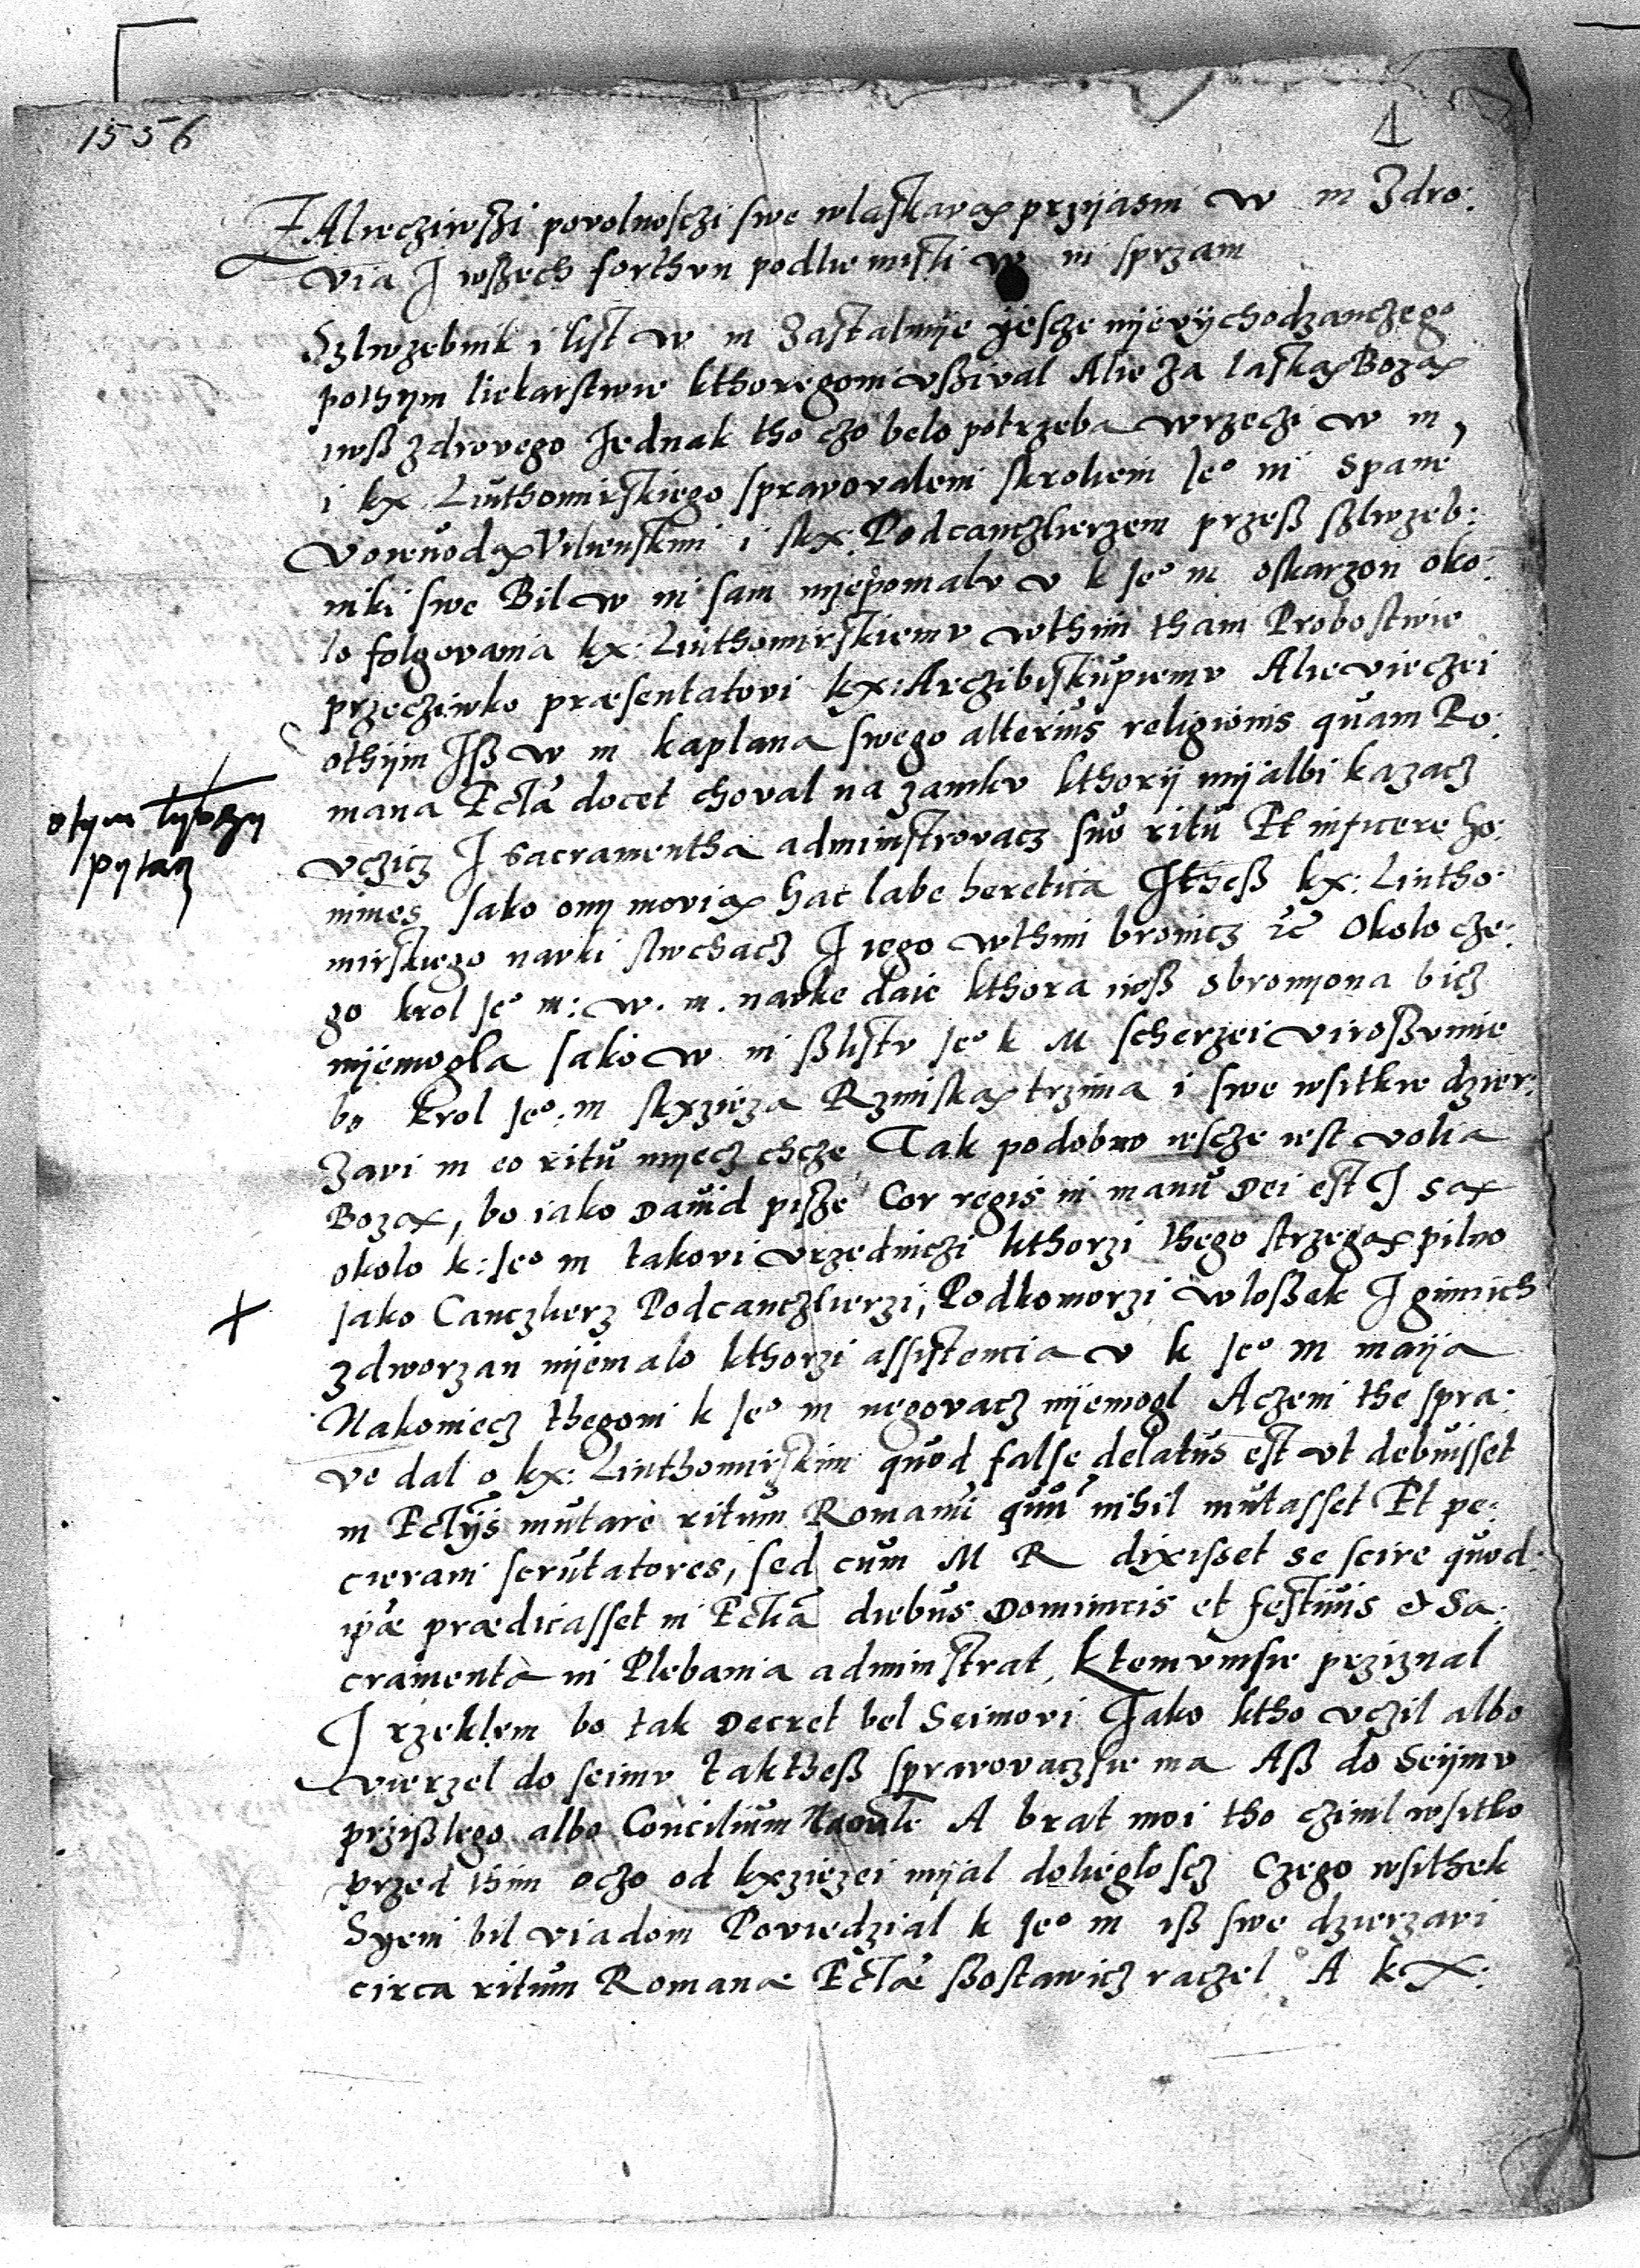 1556
1
ZAliecziwßi povolnosczi swe wlaskavą prziiasni W M Zdro:
via J wßech forthvn podlie misli W M sprzam
Szlwzebnik i list W M Zastalmije yescze nijevychodzanczego
pothym liekarstwie kthoregom vßival Alie Za laską Bozą
iwß Zdrovego Jednak tho czo belo potrzeba wrzeczi W M,
i kx. Linthomirskiego spravovalem skroliem Je° M Spane
voievodą Vilienskim i skx: Podcanczlierzem przeß szlwzeb:
niki swe Bil W M sam nijepomalv v k Je° M oskarzon oko:
lo folgovania kx: Linthomirskiemv wthim tham Probostwie
przecziwko præsentatovi kx: Arczibiskupiemv Alie vieczei
othijm Jß W M kaplana swego alterius religionis quam Ro:
mana Eclã docet choval na zamkv kthorij mijalbi kazacz
otym tyvßy
pytacz
vczicz J sacramentha administrovacz suo ritu Et inficere ho:
mines Jako ony movią hac labe heretica Jtheß kx: Lintho:
mirskiego navki slwchacz J iego wthim bronicz &c Okolo cze:
go krol Je° M: W. M. navke daie kthora iwß sbronijona bicz
nijemogla Jako W M ßlistv Je° k M scherzei virozvmie
bo krol Je°. M skxzieza Rzimską trzima i swe wsitkie dzier:
zavi in eo ritu mijecz chcze Tak podobno iescze iest volia
Bozą, bo iako David pisze Cor regis in manu Dei est J są
okolo k: Je° M takovi vrzedniczi kthorzi thego strzegą pilno
X
Jako Canczlierz Podcanczlierzi, Podkomorzi wloßek J ginnich
zdworzan nijemalo kthorzi assistencia v k Je° M maija
Nakoniecz thegom k Je° M negovacz nijemogl Aczem the spra:
ve dal o kx: Linthomirskim quod false delatus est vt debuisset
in Eclijs mutare ritum Romanū quū nihil mutasset Et pe:
cieram scrutatores, sed cum M R dixisset se scire quod:
ipse prædicasset in Eclia diebus Dominicis et festivis & Sa:
cramenta in Plebania administrat, Ktemvmsie prziznal
J rzeklem bo tak Decret bel Seimovi Jako ktho vczil albo
vierzel do seimv taktheß spravovaczsie ma Aß do Seijmv
prziszlego albo Concilium Naoale A brat moi tho czinil wsitko
przed thim oczo od kxziezei mijal doliegloscz Czego wsithek
Syem bil viadom Poviedzial k Je° M iß swe dzierzavi
circa ritum Romanæ Eclæ ßostawicz raczel A k X: